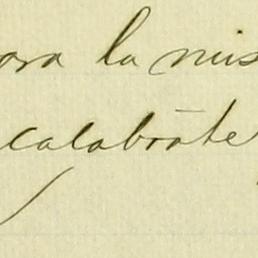 ora la mis
calabrāte